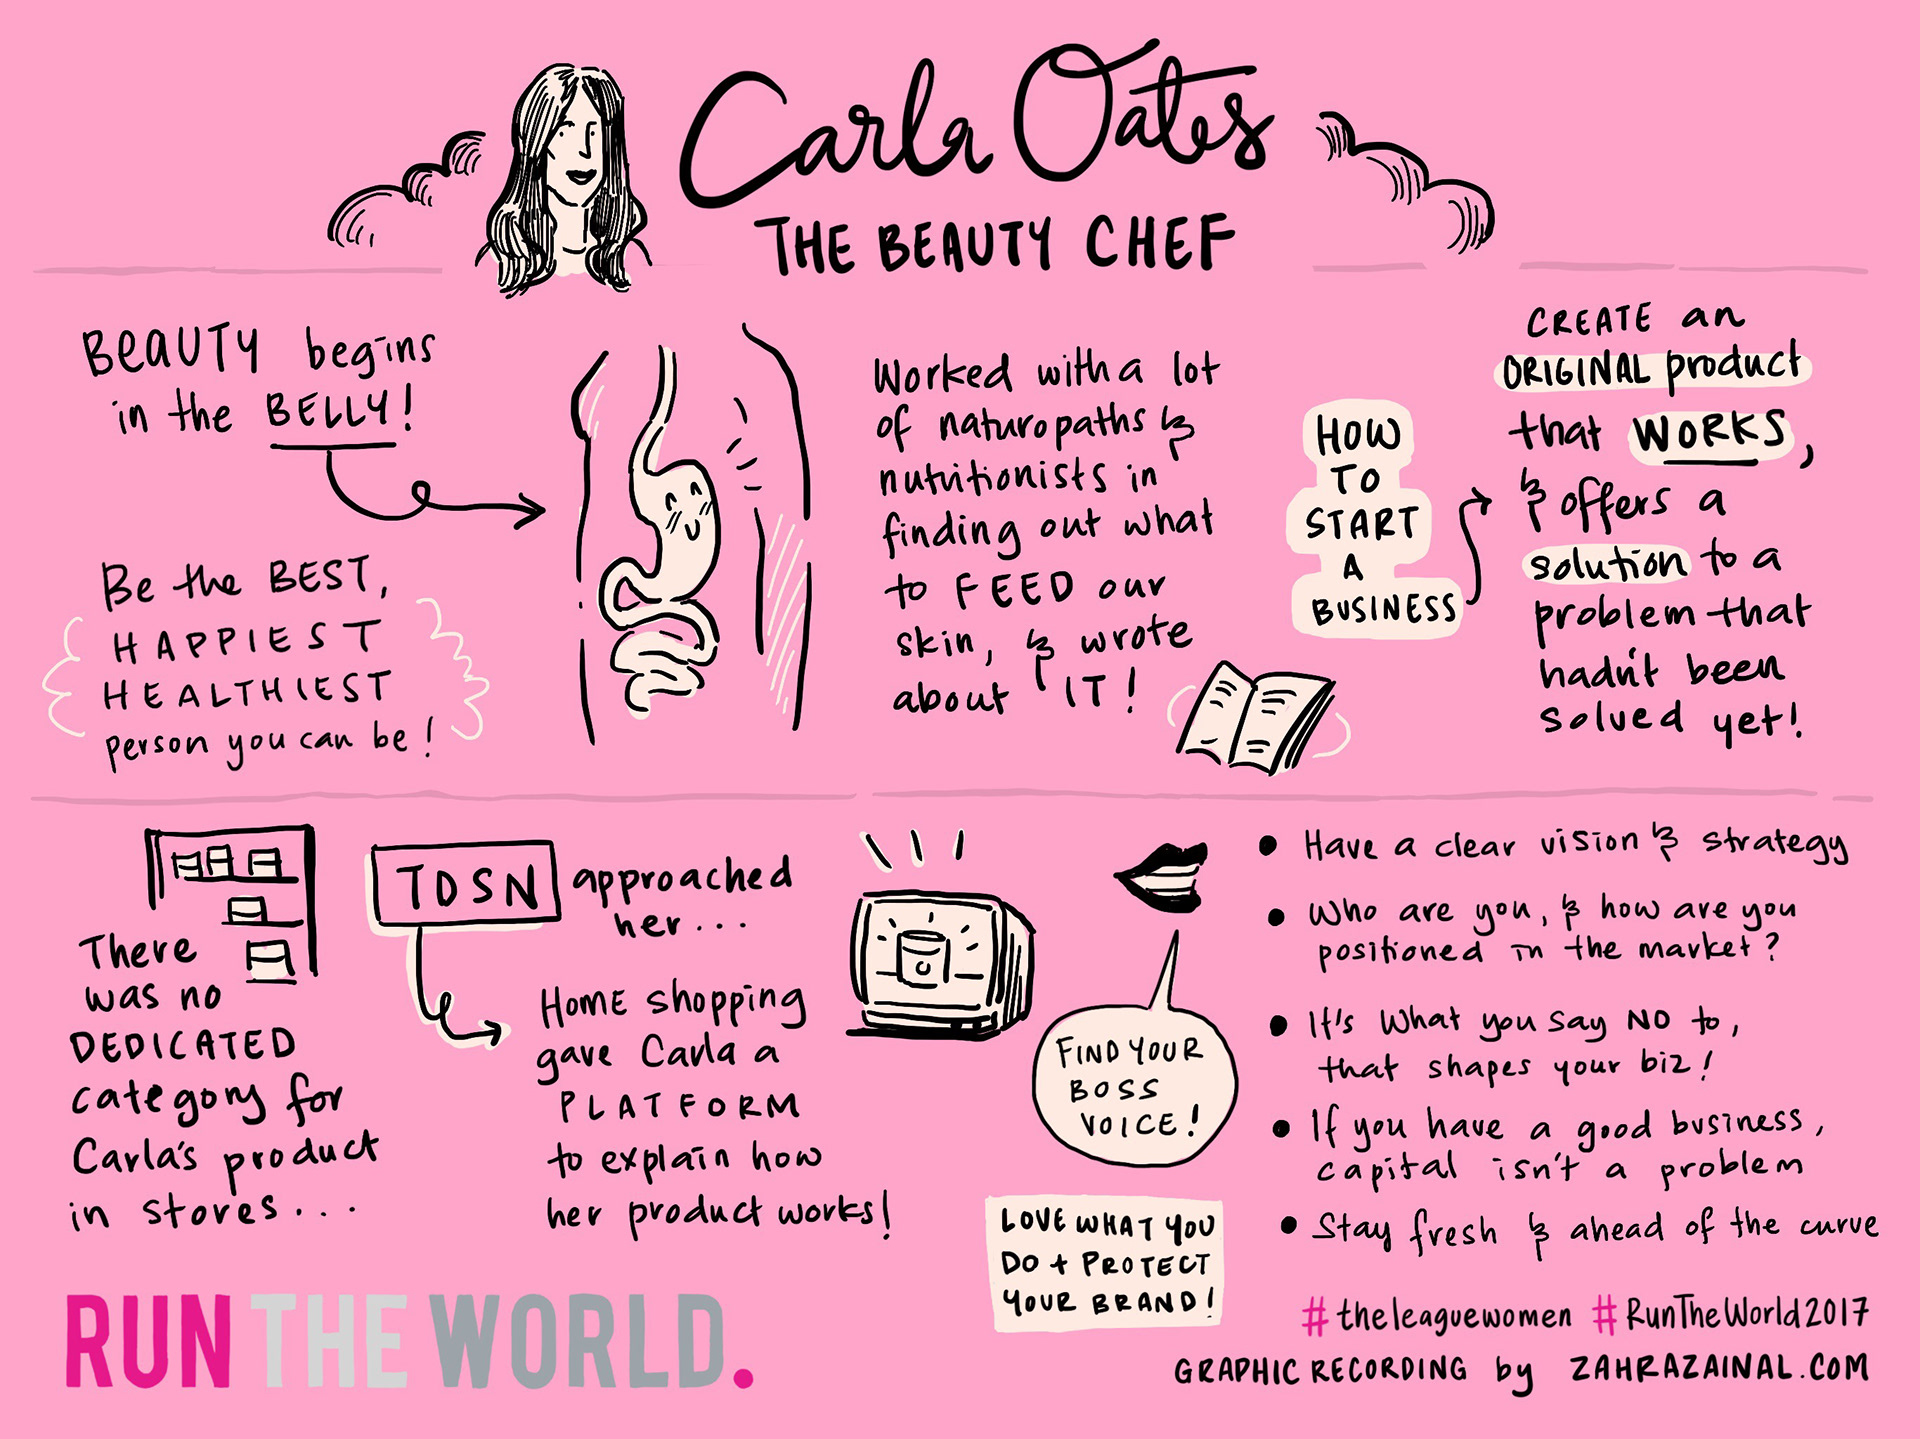 Carla Oates
THE BEAUTY CHEF
BEAUTY begins
in the BELLY!
Be the BEST,
HAPPIEST
HEALTHIEST
person you can be!
Worked with a lot
of naturopaths &
nutritionists in
finding out what
to FEED our
skin, & wrote
about IT!
HOW
TO
START
A
BUSINESS
CREATE an
ORIGINAL product
that WORKS,
& offers a
solution to a
problem that
hadn't been
solved yet!
There
was no
DEDICATED
category for
Carla's product
in stores...
TDSN approached
her...
HOME shopping
gave Carla a
PLATFORM
to explain how
her product works!
FIND YOUR
BOSS
VOICE!
LOVE WHAT YOU
DO + PROTECT
YOUR BRAND!
• Have a clear vision & strategy
• Who are you, & how are you
positioned in the market?
• It's what you say NO to,
that shapes your biz!
• If you have a good business,
capital isn't a problem
• Stay fresh & ahead of the curve
RUN THE WORLD.
#theleaguewomen #RunTheWorld2017
GRAPHIC RECORDING by ZAHRAZAINAL.COM